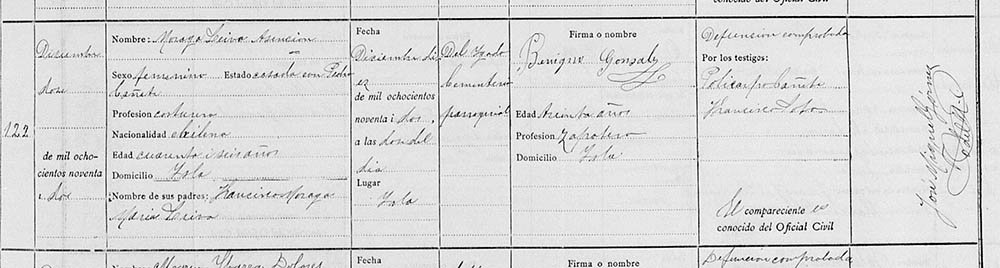 conocido del Oficial Civil
122
Diciembre
dose
de mil ocho-
cientos noventa
i dos
Nombre: Moraga Leiva Asencion
Sexo femenino Estado casada con Pedro
Cañete
Profesion costurera
Nacionalidad chilena
Edad cuarenta i seis años
Domicilio Isla
Nombre de sus padres: Francisco Moraga
Maria Leiva
Fecha
Diciembre di
ez
de mil ochocientos
noventa i dos,
a las dose del
dia
Lugar
Isla
Del Igado
Cementerio
parroquial
Firma o nombre
Benigno Gonzalez
Edad treinta años
Profesion Zapatero
Domicilio Isla
Defuncion comprobada
Por los testigos:
Policarpo Cañete
Francisco Soto
El compareciente es
conocido del Oficial Civil
José Miguel Gómez
Fecha
Firma o nombre
Defuncion comprobada
Dolores